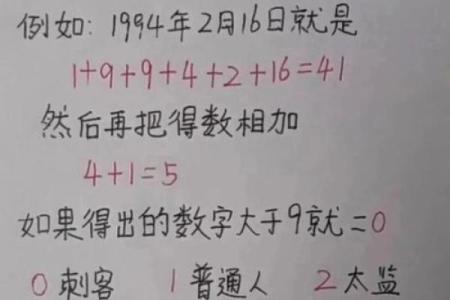 例如: 1994年2月16日就是
1+9+9+4+2+16=41
然后再把得数相加
4+1=5
如果得出的数字大于9就=0
0刺客 1普通人 2太监